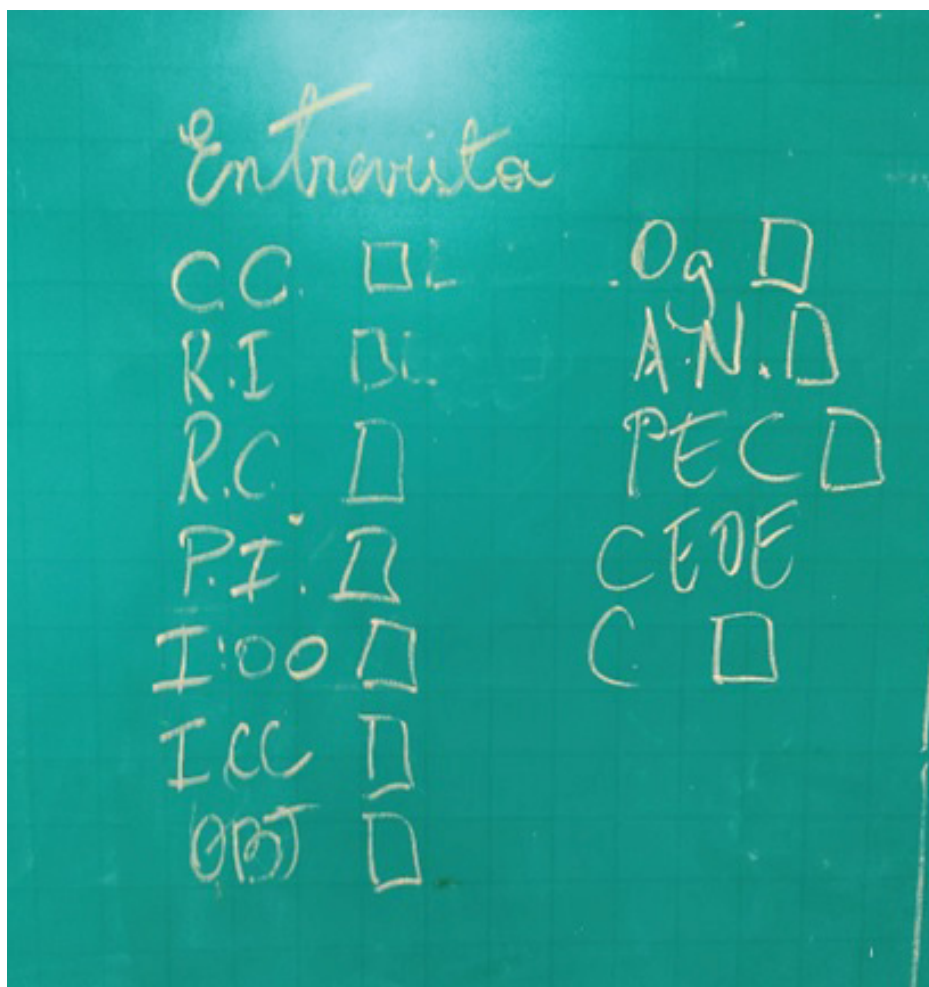 Entrevista
C.C. □
R.I □
R.C. □
P.I. □
I:OO □
ICC □
OBJ □
.Og □
A.N. □
PEC □
CEDE
C. □